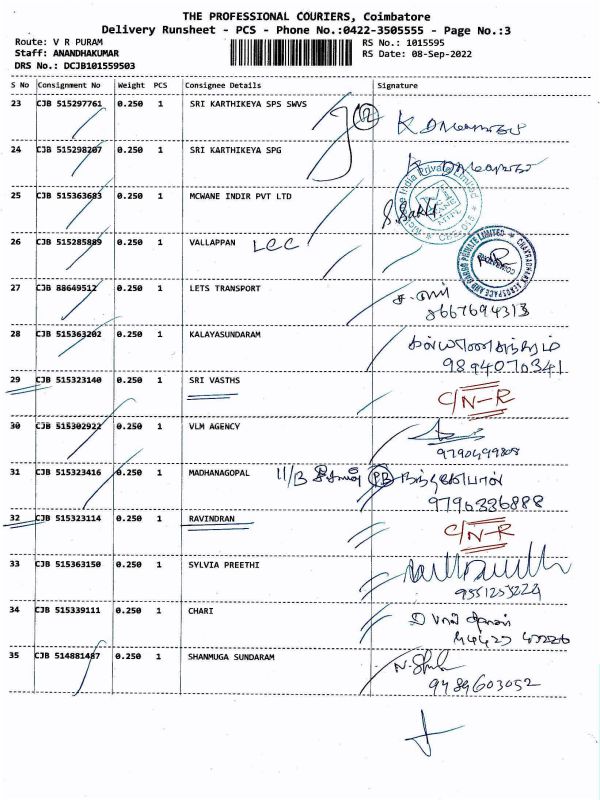 THE PROFESSIONAL COURIERS, Coimbatore
Delivery Runsheet - PCS - Phone No.:0422-3505555 - Page No.:3
Route: V R PURAM
RS No.: 1015595
Staff: ANANDHAKUMAR
RS Date: 08-Sep-2022
DRS No.: DCJB101559503
S No Consignment No Weight PCS Consignee Details Signature
23 CJB 515297761 0.250 1 SRI KARTHIKEYA SPS SWVS
24 CJB 515298207 0.250 1 SRI KARTHIKEYA SPG
25 CJB 515363683 0.250 1 MCWANE INDIR PVT LTD
26 CJB 515285889 0.250 1 VALLAPPAN LCC
27 CJB 88649512 0.250 1 LETS TRANSPORT
8667694313
28 CJB 515363202 0.250 1 KALAYASUNDARAM
9894070341
29 CJB 515323140 0.250 1 SRI VASTHS C/N-R
30 CJB 515302922 0.250 1 VLM AGENCY
31 CJB 515323416 0.250 1 MADHANAGOPAL 11/B PB
9796336888
32 CJB 515323114 0.250 1 RAVINDRAN C/N-R
33 CJB 515363150 0.250 1 SYLVIA PREETHI
34 CJB 515339111 0.250 1 CHARI
35 CJB 514881487 0.250 1 SHANMUGA SUNDARAM
9489603052